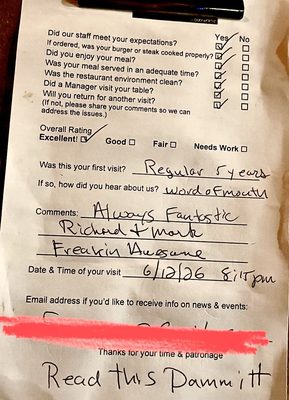 Yes No
Did our staff meet your expectations? ☑ ☐
If ordered, was your burger or steak cooked properly? ☑ ☐
Did you enjoy your meal? ☑ ☐
Was your meal served in an adequate time? ☑ ☐
Was the restaurant environment clean? ☑ ☐
Did a Manager visit your table? ☑ ☐
Will you return for another visit? ☑ ☐
(If not, please share your comments so we can
address the issues.)
Overall Rating
Excellent! ☑ Good ☐ Fair ☐ Needs Work ☐
Was this your first visit? Regular 5 years
If so, how did you hear about us? word of mouth
Comments: Always Fantastic
Richard + Mark
Freakin Awesome
Date & Time of your visit 6/12/26 8:15pm
Email address if you'd like to receive info on news & events:
Thanks for your time & patronage
Read this Dammitt